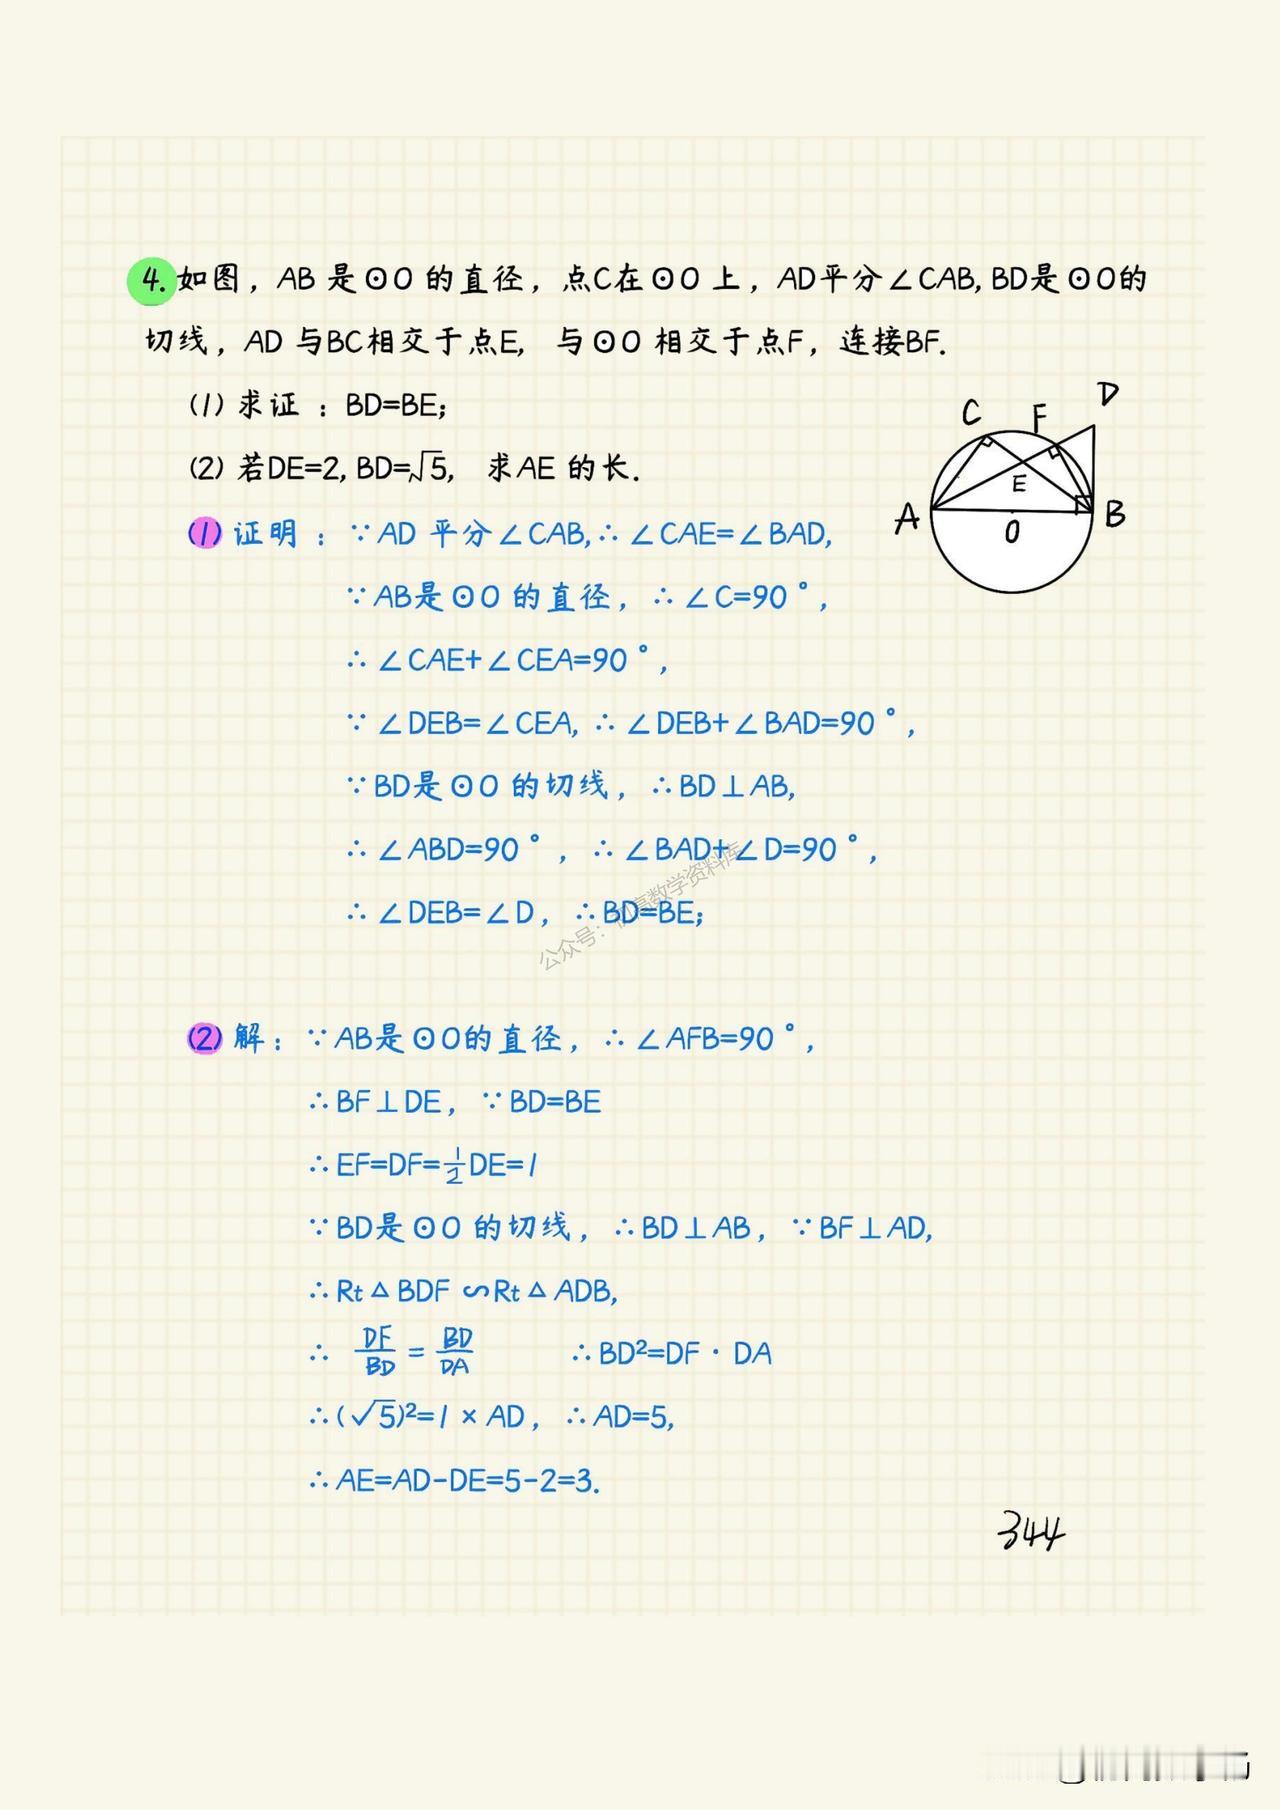 4. 如图，AB 是⊙O 的直径，点C在⊙O 上，AD平分∠CAB, BD是⊙O的
切线，AD 与BC相交于点E, 与⊙O 相交于点F，连接BF.
(1) 求证：BD=BE;
(2) 若DE=2, BD=√5, 求AE 的长.
C F D
E
A O B
(1) 证明：∵AD 平分∠CAB,∴∠CAE=∠BAD,
∵AB是⊙O 的直径，∴∠C=90°,
∴∠CAE+∠CEA=90°,
∵∠DEB=∠CEA, ∴∠DEB+∠BAD=90°,
∵BD是⊙O 的切线，∴BD⊥AB,
∴∠ABD=90°，∴∠BAD+∠D=90°,
∴∠DEB=∠D，∴BD=BE;
公众号：初高数学资料库
(2) 解：∵AB是⊙O的直径，∴∠AFB=90°,
∴BF⊥DE，∵BD=BE
∴EF=DF=1/2DE=1
∵BD是⊙O 的切线，∴BD⊥AB，∵BF⊥AD,
∴Rt△BDF∽Rt△ADB,
∴ DF/BD = BD/DA ∴BD²=DF·DA
∴(√5)²=1×AD，∴AD=5,
∴AE=AD-DE=5-2=3.
344